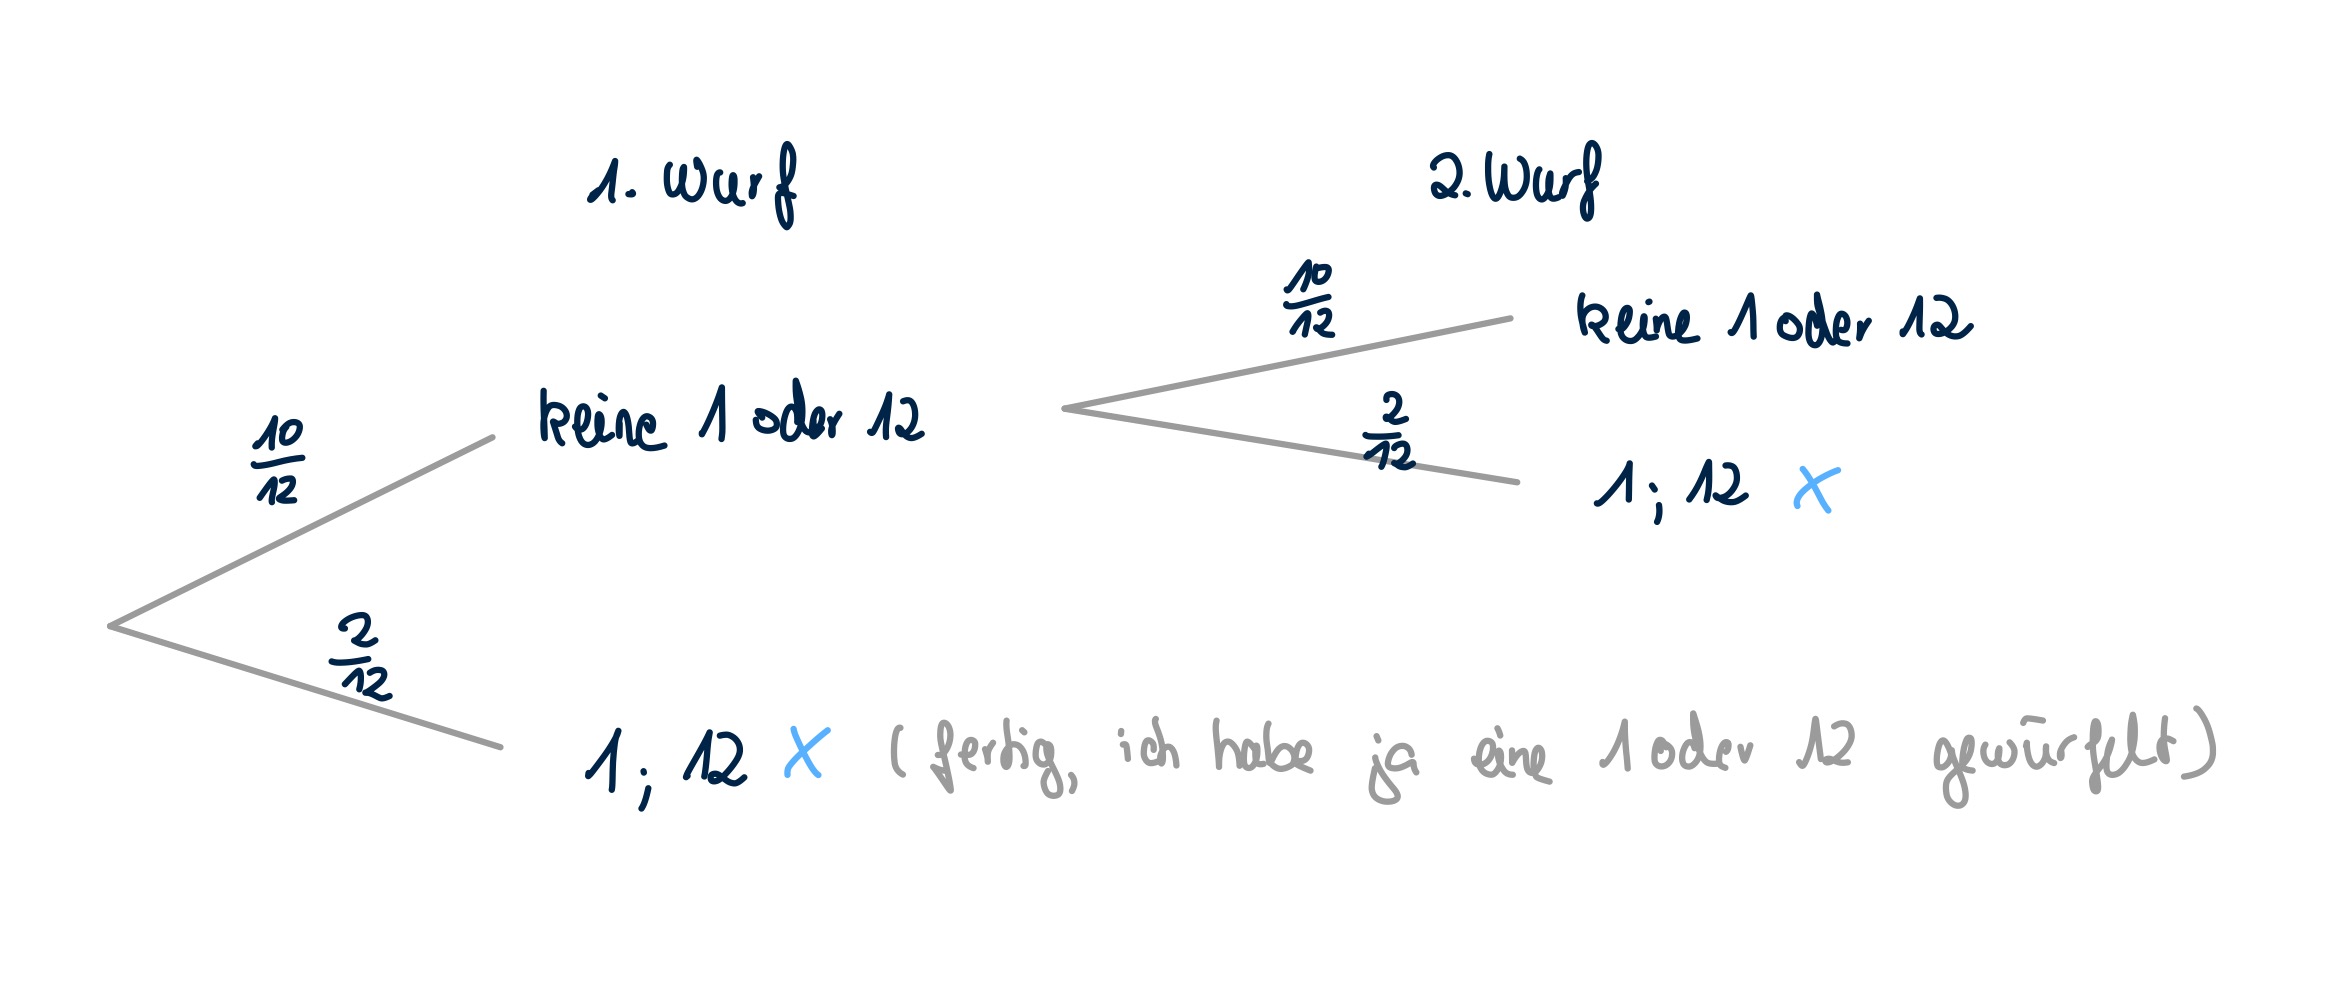 1. Wurf
2. Wurf
10/12
keine 1 oder 12
10/12
keine 1 oder 12
2/12
1; 12 x
2/12
1; 12 x (fertig, ich habe ja eine 1 oder 12 gewürfelt)